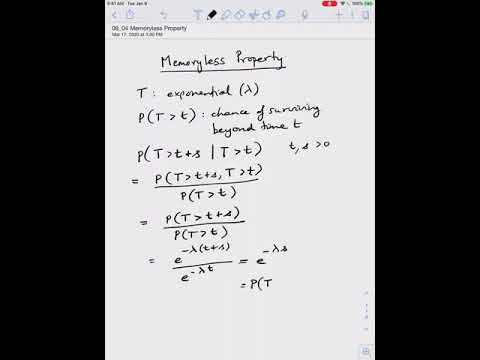 9:41 AM Tue Jan 9
09_04 Memoryless Property
Mar 17, 2020 at 3:00 PM
Memoryless Property
T : exponential (λ)
P(T>t) : chance of surviving
beyond time t
P(T>t+s | T>t) t, s >0
= P(T>t+s, T>t) / P(T>t)
= P(T>t+s) / P(T>t)
= e^{-λ(t+s)} / e^{-λt} = e^{-λs}
= P(T